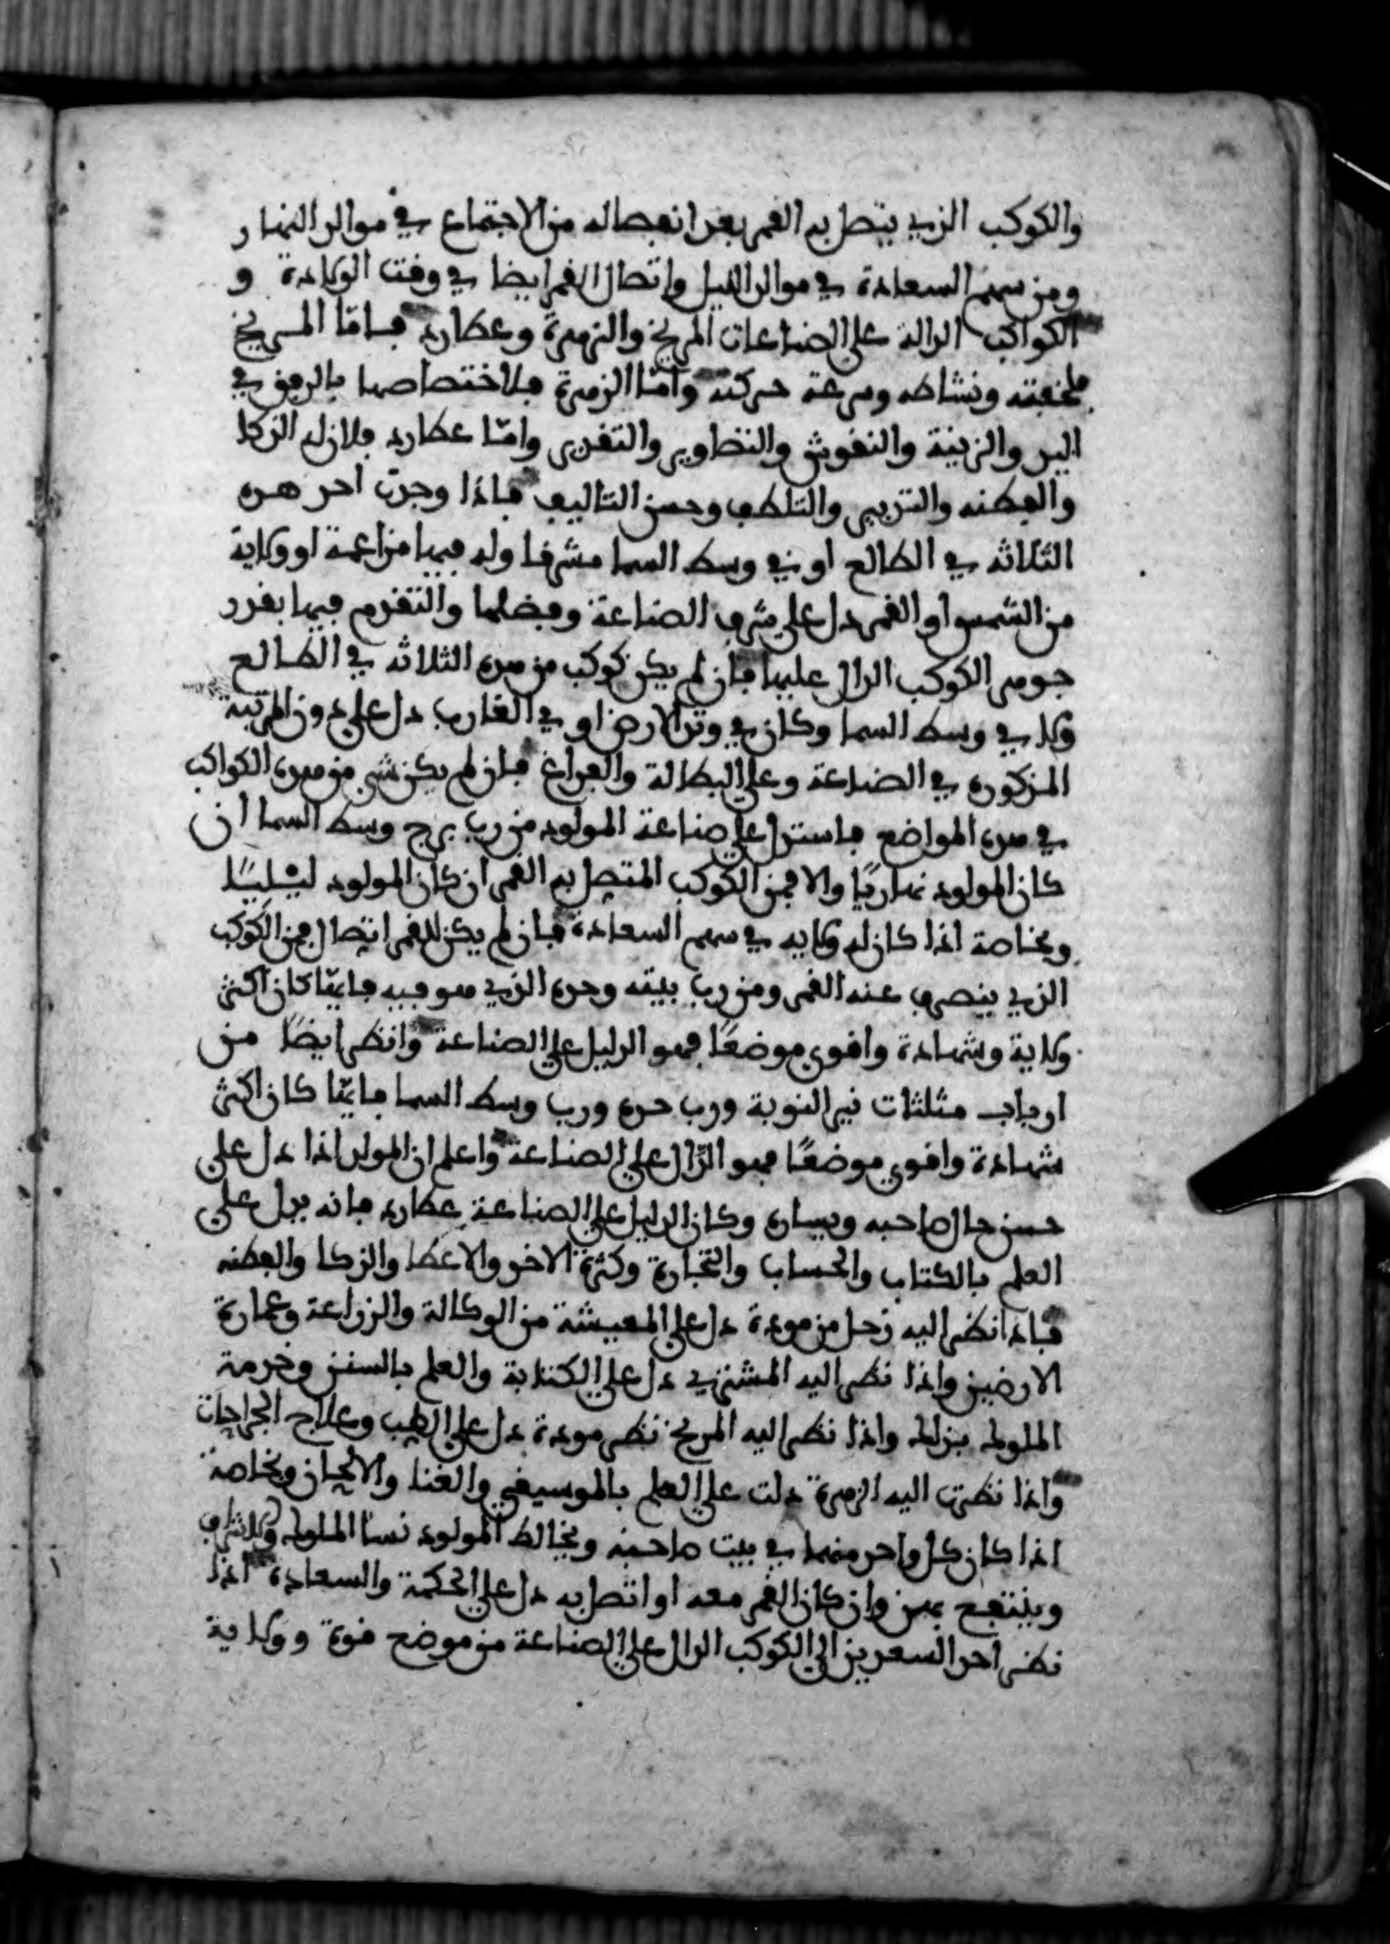 والكوكب الذي يتصل به القمر بعد انفصاله من الاجتماع في موالد النهار
ومن سهم السعادة في موالد الليل واتصال القمر ايضا في وقت الولادة و
الكواكب الدالة على الصناعات المريخ والزهرة وعطارد فاما المريخ
فلخفته ونشاطه وسرعة حركته وامّا الزهرة فلاختصاصها بالرفق في
اليد والزينة والنقوش والتظاوير والتقدير وامّا عطارد فلان له الذكا
والفطنه والتدبير والتلطف وحسن التاليف فاذا وجدت احد هذه
الثلاثه في الطالع او في وسط السما مشرفا وله فيها مزاعمة او ولاية
من الشمس او القمر دل على شرف الصناعة وفضلها والتقدم فيها بقدر
جوهر الكوكب الدال عليها فان لم يكن كوكب من هذه الثلاثه في الطالع
ولا في وسط السما وكان في وتد الارض او في الغارب دل على دون المرتبة
المذكوره في الصناعة وعلى البطالة والفراغ فان لم يكن شي من هذه الكواكب
في هذه المواضع فاستدل على صناعة المولود من رب برج وسط السما ان
كان المولود نهاريًا والا فمن الكوكب المتصل به القمر ان كان المولود ليليًا
وبخاصة اذا كان له ولايه في سهم السعادة فان لم يكن للقمر اتصال فمن الكوكب
الذي ينصرف عنه القمر ومن رب بيته وحده الذي هو فيه فايهّا كان اكثر
ولاية وشهادة واقوى موضعًا فهو الدليل على الصناعة وانظر ايضًا من
ارباب مثلثات نير النوبة ورب حده ورب وسط السما فايهّا كان اكثر
شهادة واقوى موضعًا فهو الدّال على الصناعة واعلم ان المولد اذا دل على
حسن حال صاحبه ويساره وكان الدليل على الصناعة عطارد فانه يدل على
العلم بالكتاب والحساب والتجارة وكثرة الاخذ والاعطا والذكا والفطنه
فاذا نظر اليه زحل من مودة دل على المعيشة من الوكالة والزراعة وعمارة
الارضين واذا نظر اليه المشتري دل على الكتابة والعلم بالسنن وخدمة
الملوك بذلك واذا نظر اليه المريخ نظر مودة دل على الطب وعلاج الجراحات
واذا نظرت اليه الزهرة دلت على العلم بالموسيقي والغنا والالحان وبخاصة
اذا كان كل واحد منهما في بيت صاحبه ويخالط المولود نسا الملوك والاشراف
وينتفع بهن وان كان القمر معه او اتصل به دل على الحكمة والسعادة اذا
نظر احد السعدين الى الكوكب الدال على الصناعة من موضع قوة وولاية